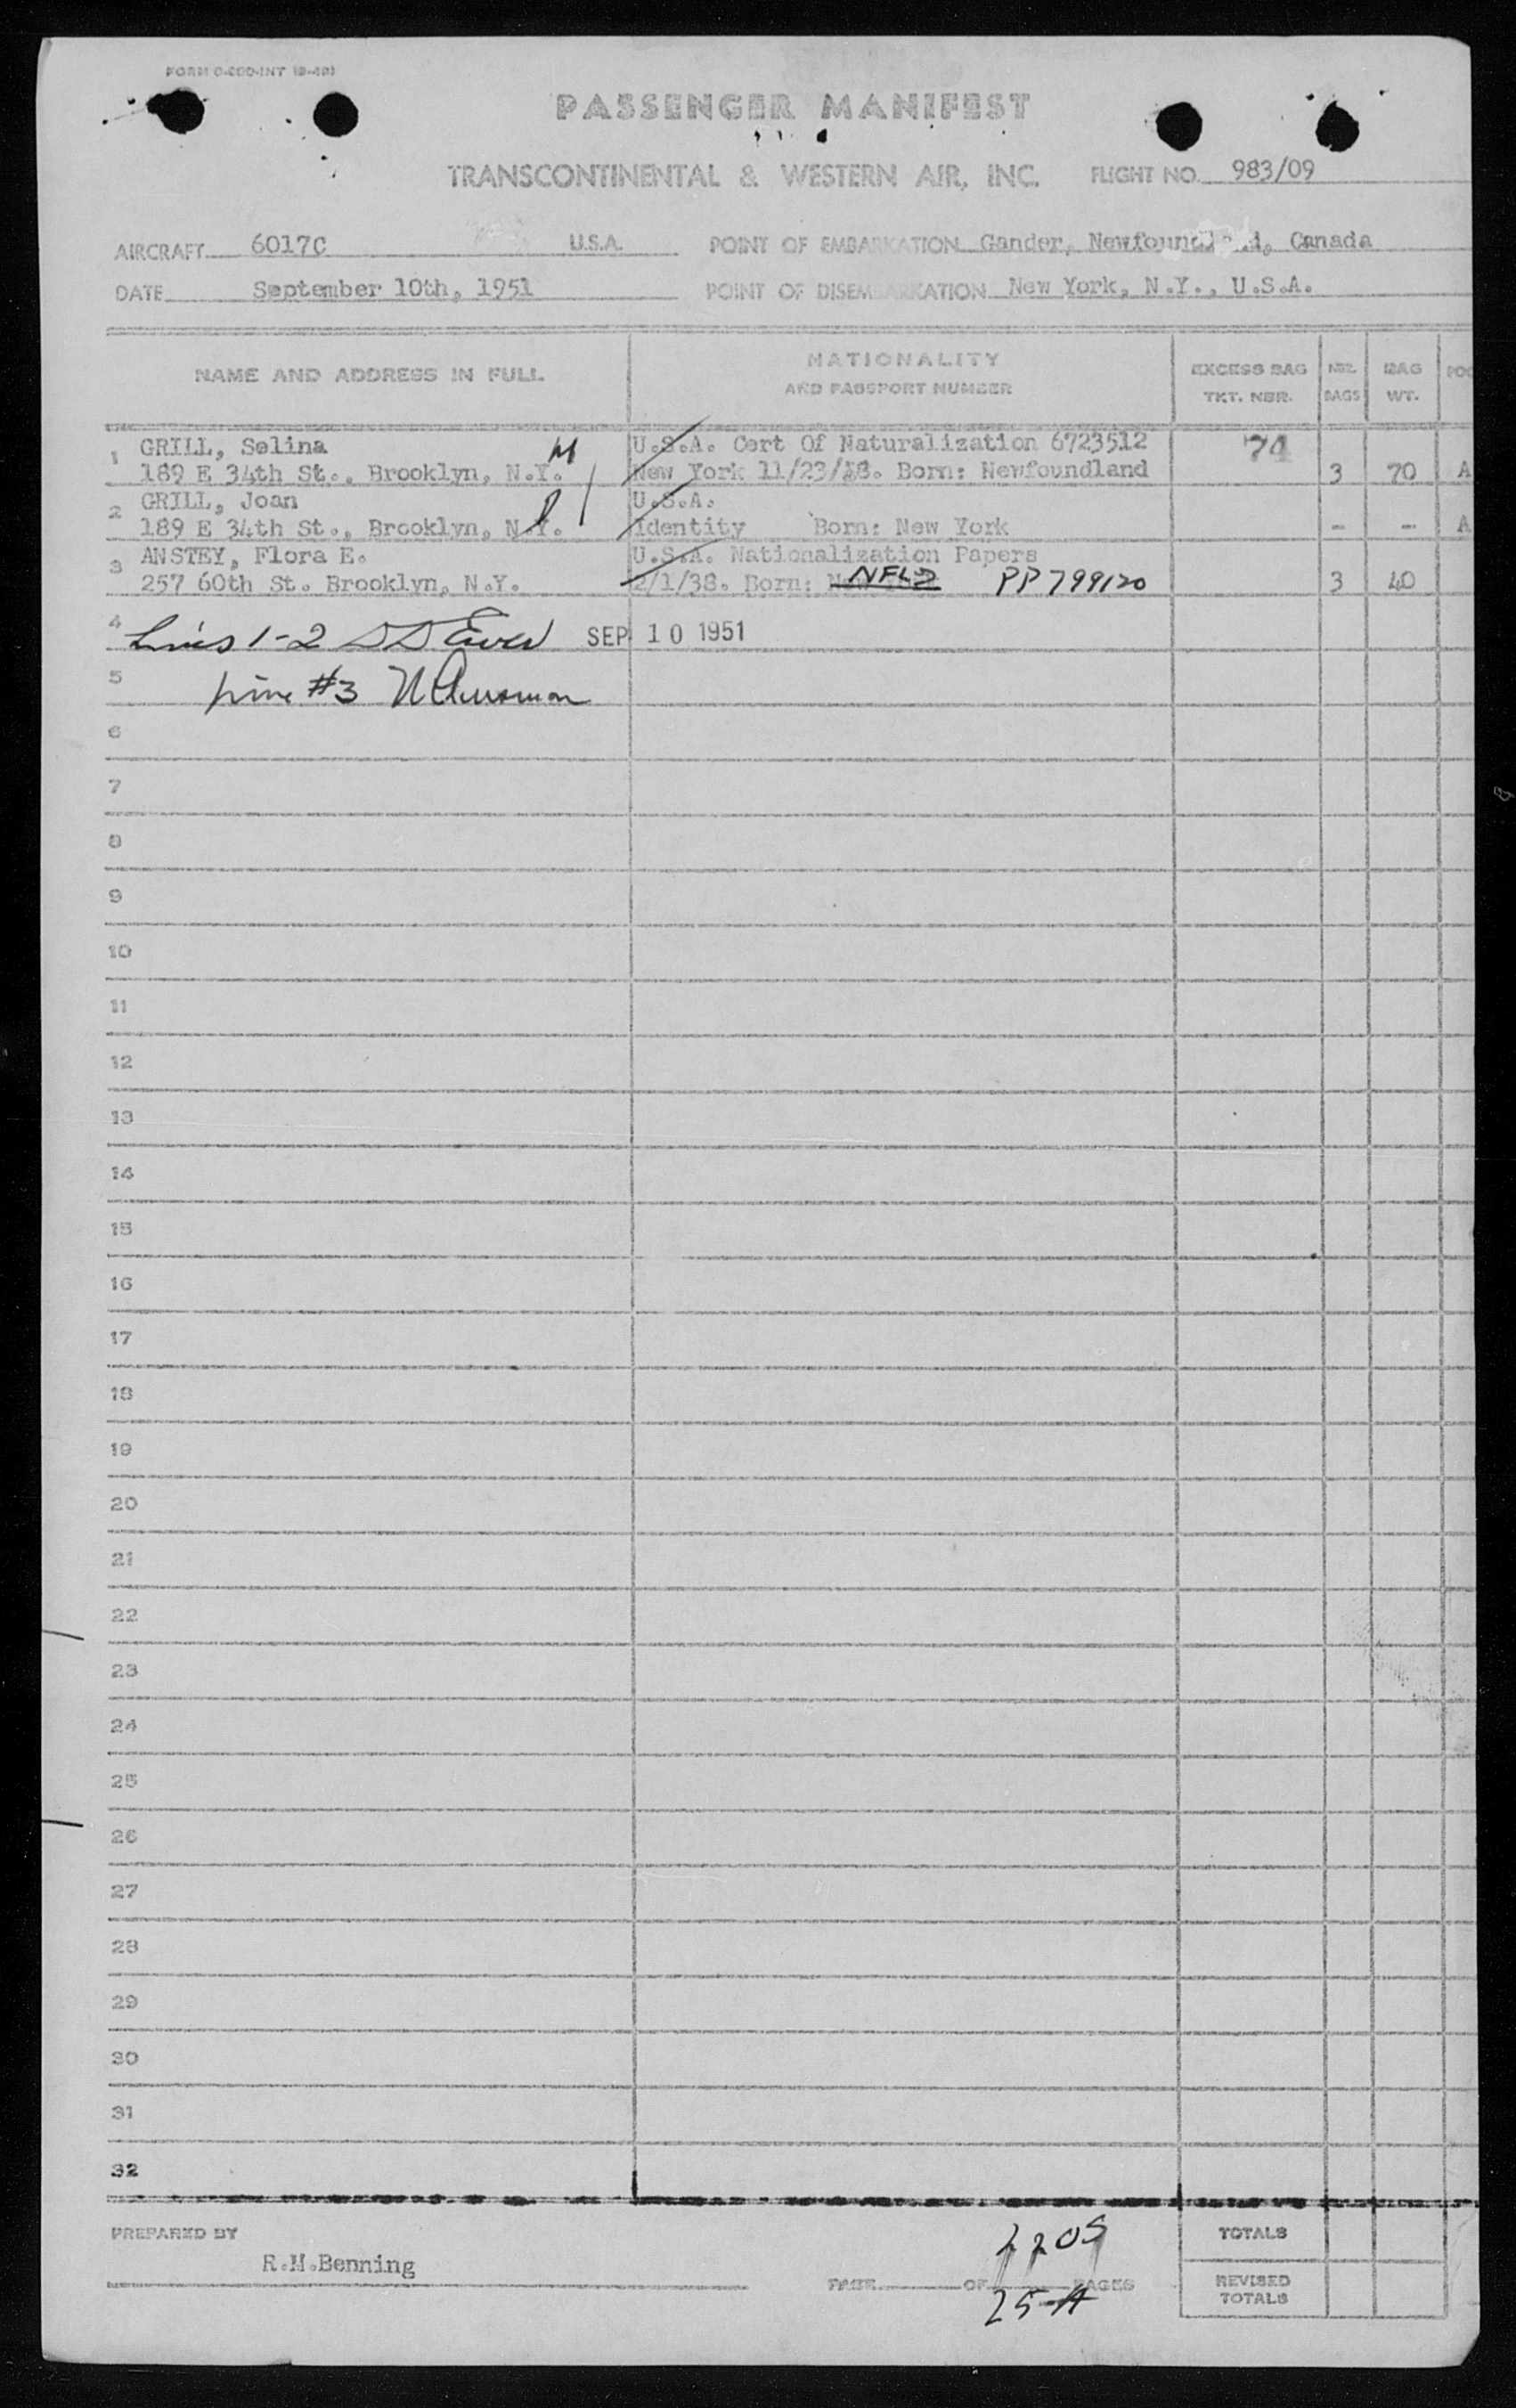 PASSENGER MANIFEST
TRANSCONTINENTAL & WESTERN AIR, INC. FLIGHT NO. 983/09
AIRCRAFT 6017C U.S.A. POINT OF EMBARKATION Gander, Newfoundland, Canada
DATE September 10th, 1951 POINT OF DISEMBARKATION New York, N.Y., U.S.A.
NAME AND ADDRESS IN FULL NATIONALITY AND PASSPORT NUMBER EXCESS BAG TKT. NBR. NBR. BAGS BAG WT.
1 GRILL, Selina M U.S.A. Cert Of Naturalization 6723512 74
189 E 34th St., Brooklyn, N.Y. New York 11/23/48. Born: Newfoundland 3 70 A
2 GRILL, Joan U.S.A.
189 E 34th St., Brooklyn, N.Y. Identity Born: New York - - A
3 ANSTEY, Flora E. U.S.A. Nationalization Papers
257 60th St. Brooklyn, N.Y. 2/1/38. Born: NFLD PP 799120 3 40
4 Lines 1-2 SEP 10 1951
5 Line #3
6
7
8
9
10
11
12
13
14
15
16
17
18
19
20
21
22
23
24
25
26
27
28
29
30
31
32
PREPARED BY TOTALS
R.M.Benning
PAGE OF PAGES REVISED TOTALS
25-A